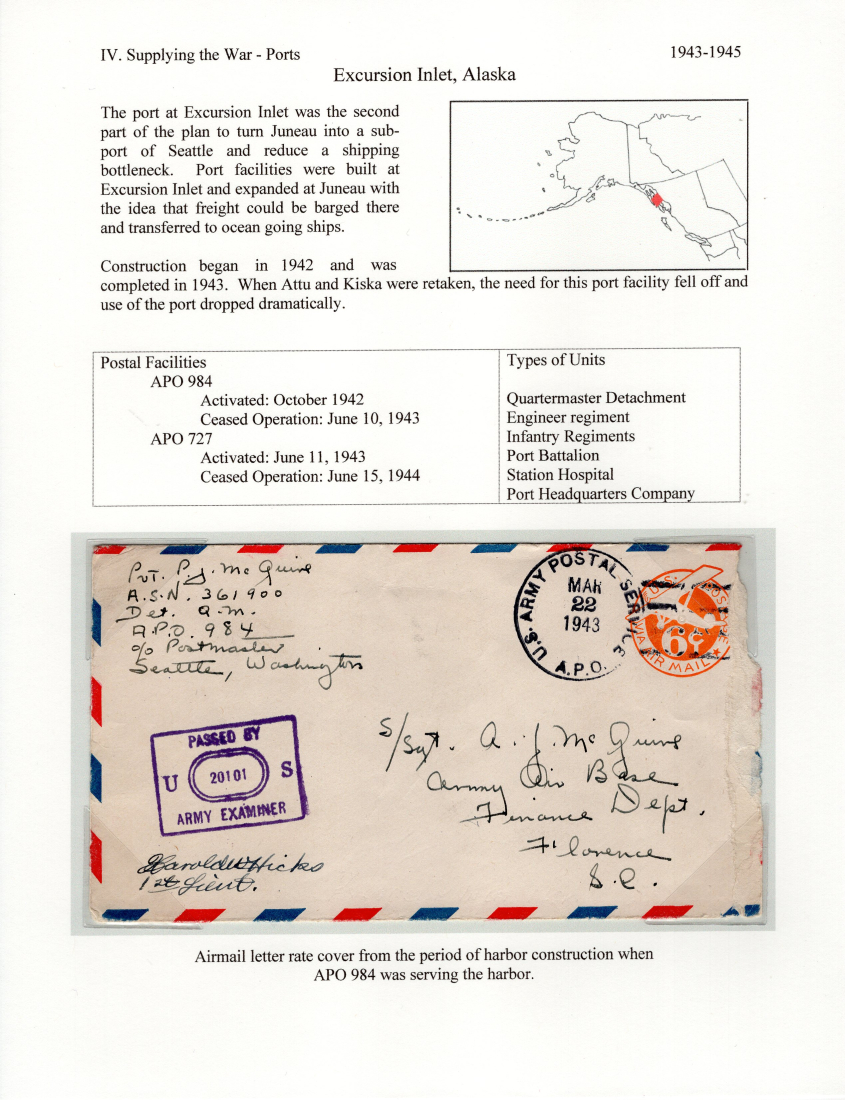 IV. Supplying the War - Ports
1943-1945
Excursion Inlet, Alaska
The port at Excursion Inlet was the second
part of the plan to turn Juneau into a sub-
port of Seattle and reduce a shipping
bottleneck. Port facilities were built at
Excursion Inlet and expanded at Juneau with
the idea that freight could be barged there
and transferred to ocean going ships.
Construction began in 1942 and was
completed in 1943. When Attu and Kiska were retaken, the need for this port facility fell off and
use of the port dropped dramatically.
Postal Facilities
APO 984
Activated: October 1942
Ceased Operation: June 10, 1943
APO 727
Activated: June 11, 1943
Ceased Operation: June 15, 1944
Types of Units
Quartermaster Detachment
Engineer regiment
Infantry Regiments
Port Battalion
Station Hospital
Port Headquarters Company
Pvt. P.J. McGuire
A.S.N. 361900
Det. Q.M.
A.P.O. 984
c/o Postmaster
Seattle, Washington
U.S. ARMY POSTAL SERVICE
MAR
22
1943
A.P.O.
U.S. POSTAGE
6¢
VIA AIR MAIL
S/Sgt. A.J. McGuire
Army Air Base
Finance Dept.
Florence
S.C.
PASSED BY
U 20101 S
ARMY EXAMINER
Harold W Hicks
1st Lieut.
Airmail letter rate cover from the period of harbor construction when
APO 984 was serving the harbor.